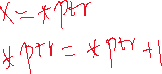 x = *ptr
*ptr = *ptr + 1